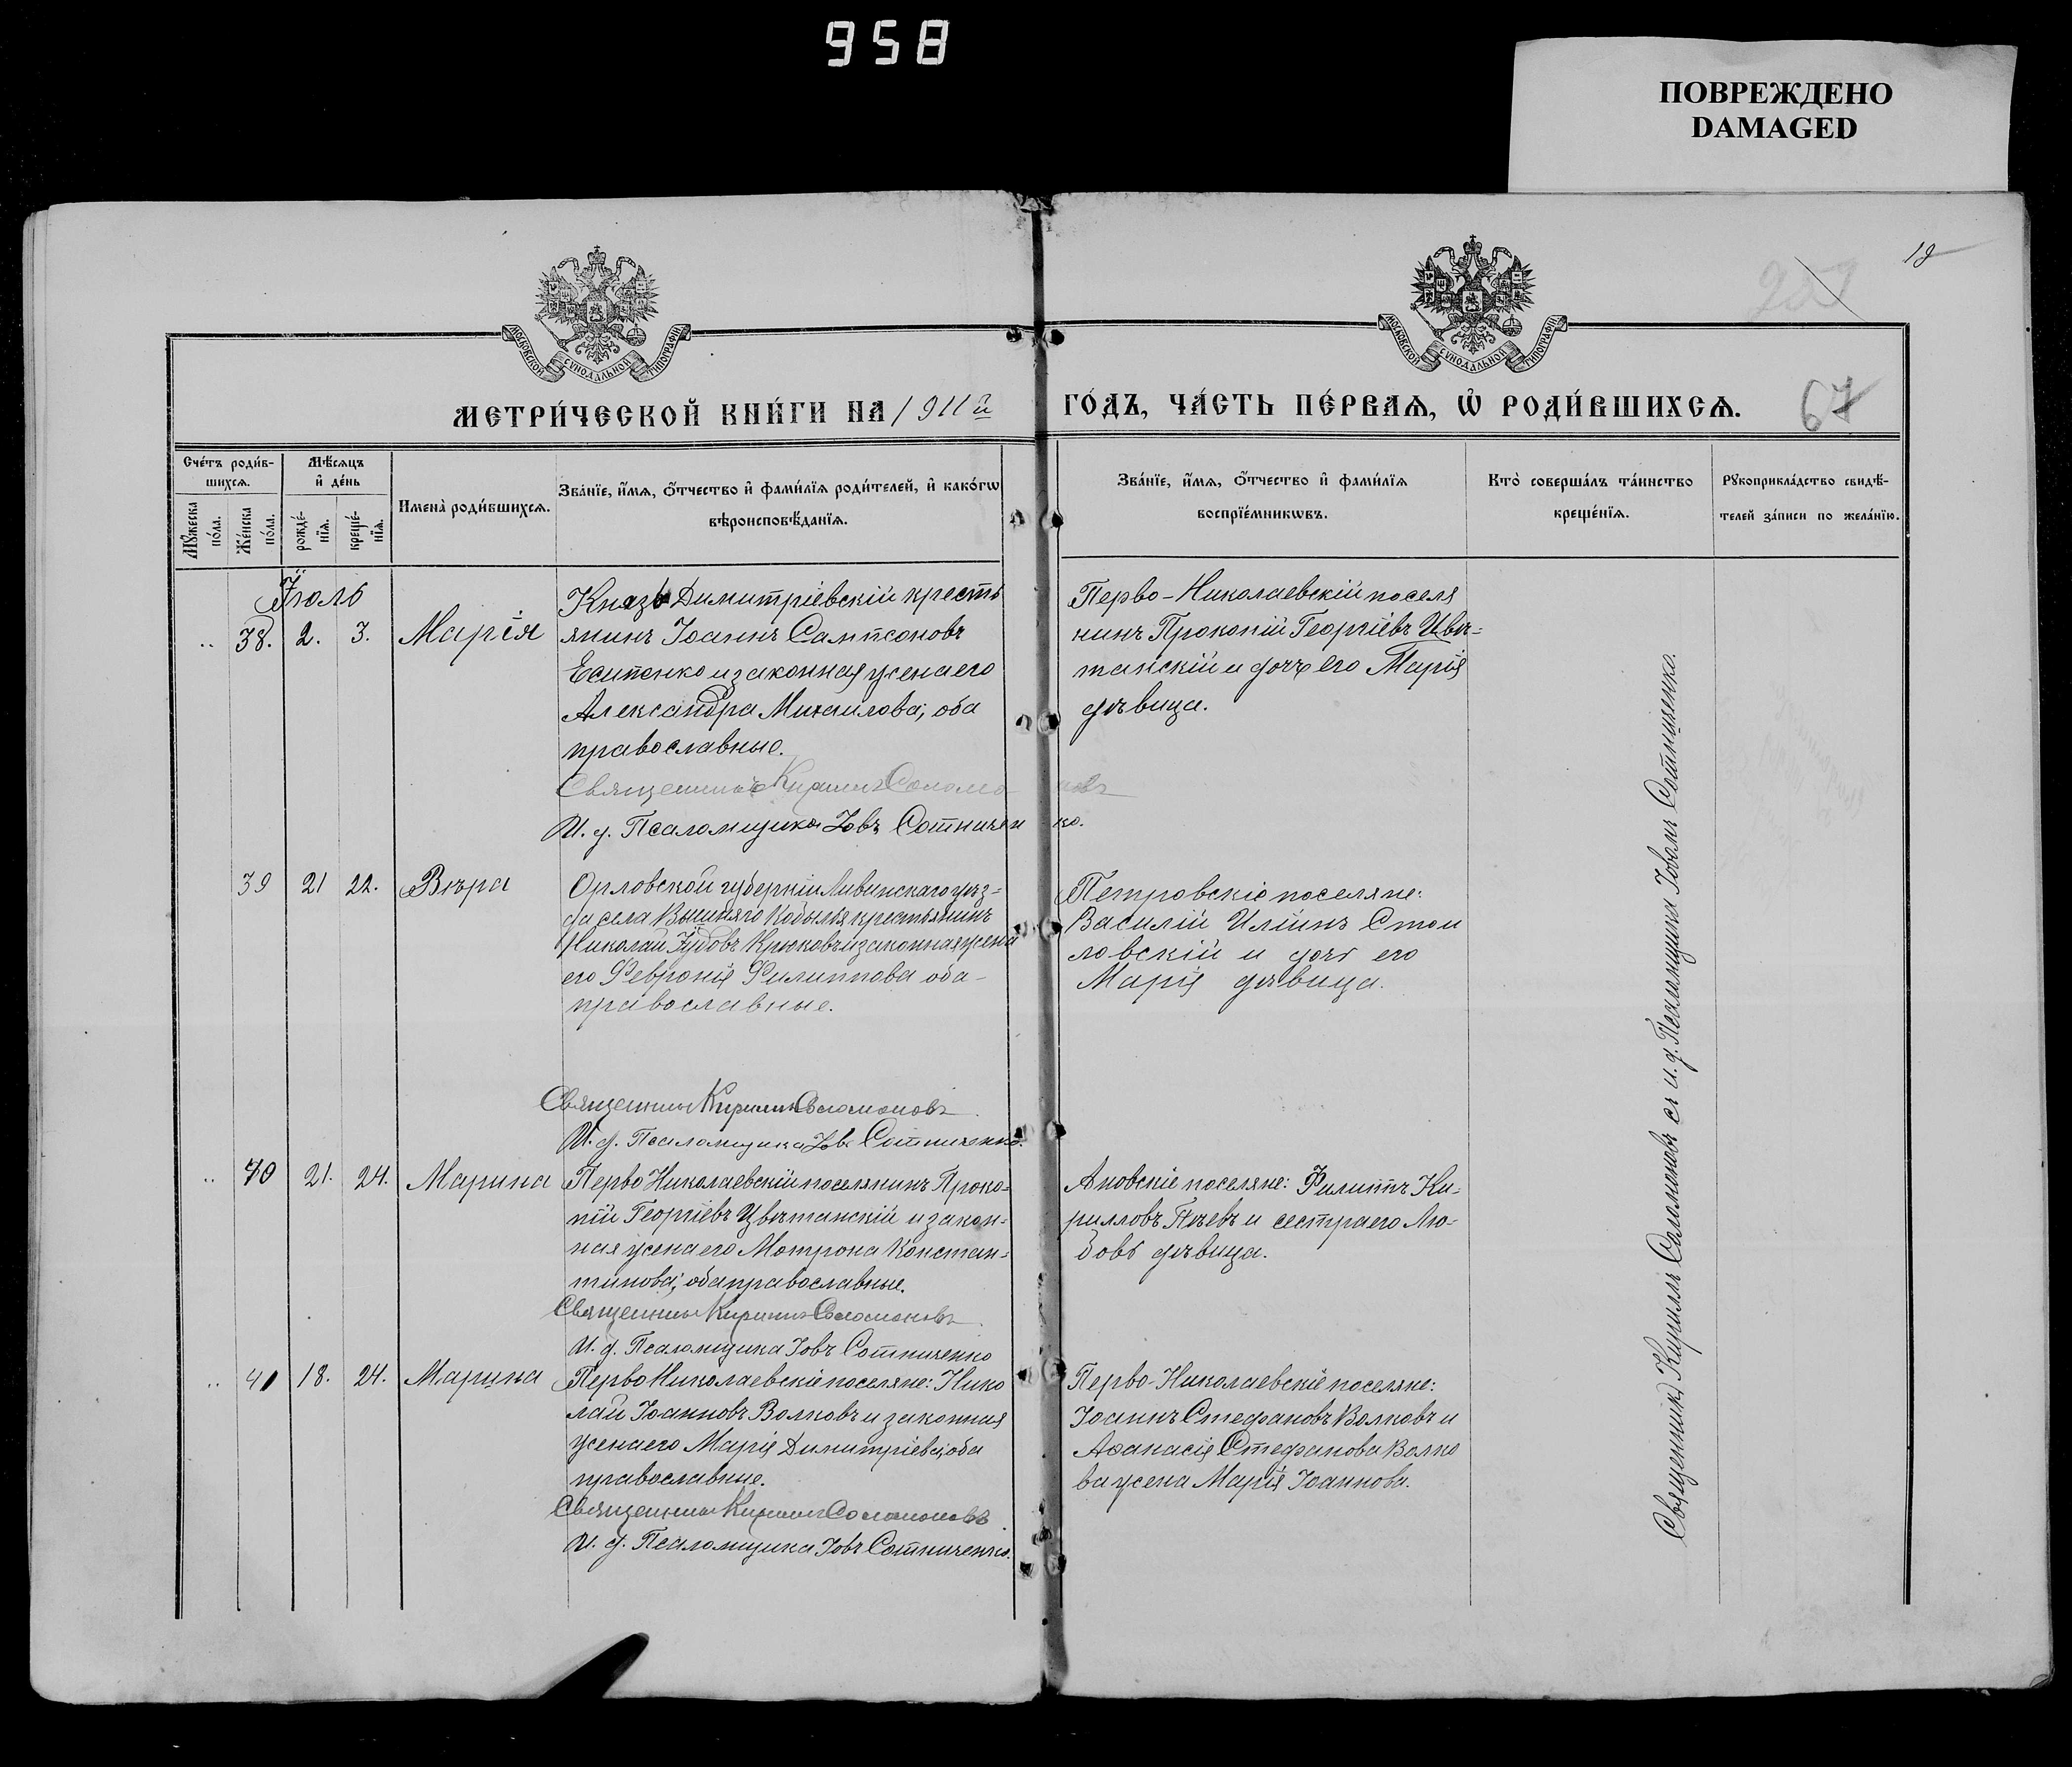 958
ПОВРЕЖДЕНО
DAMAGED
МОСКОВСКОЙ СѴНОДАЛЬНОЙ ТИПОГРАФІИ
МОСКОВСКОЙ СѴНОДАЛЬНОЙ ТИПОГРАФІИ
67
МЕТРИ́ЧЕСКОЙ КНИ́ГИ НА 1911й ГО́ДЪ, ЧА́СТЬ ПЕ́РВАѦ, Ѡ҆ РОДИ́ВШИХСѦ.
Сче́тъ роди́в-
шихсѧ.
Мꙋ́жеска по́ла.
Же́нска по́ла.
Мѣ́сѧцъ и҆ де́нь
рожде́-нїѧ.
креще́-нїѧ.
Имена̀ роди́вшихсѧ.
Зва́нїе, и҆́мѧ, ѻ҆́тчество и҆ фами́лїѧ роди́телей, и҆ како́гѡ
вѣроисповѣ́данїѧ.
Зва́нїе, и҆́мѧ, ѻ҆́тчество и҆ фами́лїѧ
воспрїе́мникѡвъ.
Кто̀ соверша́лъ та́инство
креще́нїѧ.
Рꙋкоприкла́дство свидѣ́-
телей за́писи по жела́нїю.
Іюль
38. 2. 3. Марія
Князе Димитріевскій кресть
янинъ Іоаннъ Сампсоновъ
Есипенко и законная жена его
Александра Михаилова; оба
православные.
Священникъ Кириллъ Соломоновъ
И. д. Псаломщика Іовъ Сотниченко.
Перво-Николаевскій поселя
нинъ Прокопій Георгіевъ Цвѣ=
танскій и дочь его Марія
дѣвица.
39 21 22. Вѣра
Орловской губерніи Ливинскаго уѣз=
да села Вышняго Кобылья крестьянинъ
Николай Іудовъ Крюковъ и законная жена
его Февронія Филиппова оба-
православные.
Священникъ Кириллъ Соломоновъ
И. д. Псаломщика Іовъ Сотниченко.
Петровскіе поселяне:
Василій Илiинъ Стои
ловскій и дочь его
Марія дѣвица.
40 21. 24. Марина
Перво Николаевскій поселянинъ Проко=
пій Георгіевъ Цвѣтанскій и закон=
ная жена его Мотрона Констан=
тинова; оба православные.
Священникъ Кириллъ Соломоновъ
И. д. Псаломщика Іовъ Сотниченко
Ановскіе поселяне: Филиппъ Ки=
рилловъ Пѣевъ и сестра его Лю=
бовь дѣвица.
41 18. 24. Марина
Перво Николаевскіе поселяне: Нико
лай Іоанновъ Волковъ и законная
жена его Марія Димитріева; оба
православные.
Священникъ Кириллъ Соломоновъ
И. д. Псаломщика Іовъ Сотниченко.
Перво-Николаевскіе поселяне:
Іоаннъ Стефановъ Волковъ и
Аѳанасія Стефанова Волко
ва жена Марія Іоаннова.
Священникъ Кириллъ Соломоновъ съ и. д. Псаломщика Іовомъ Сотниченко.